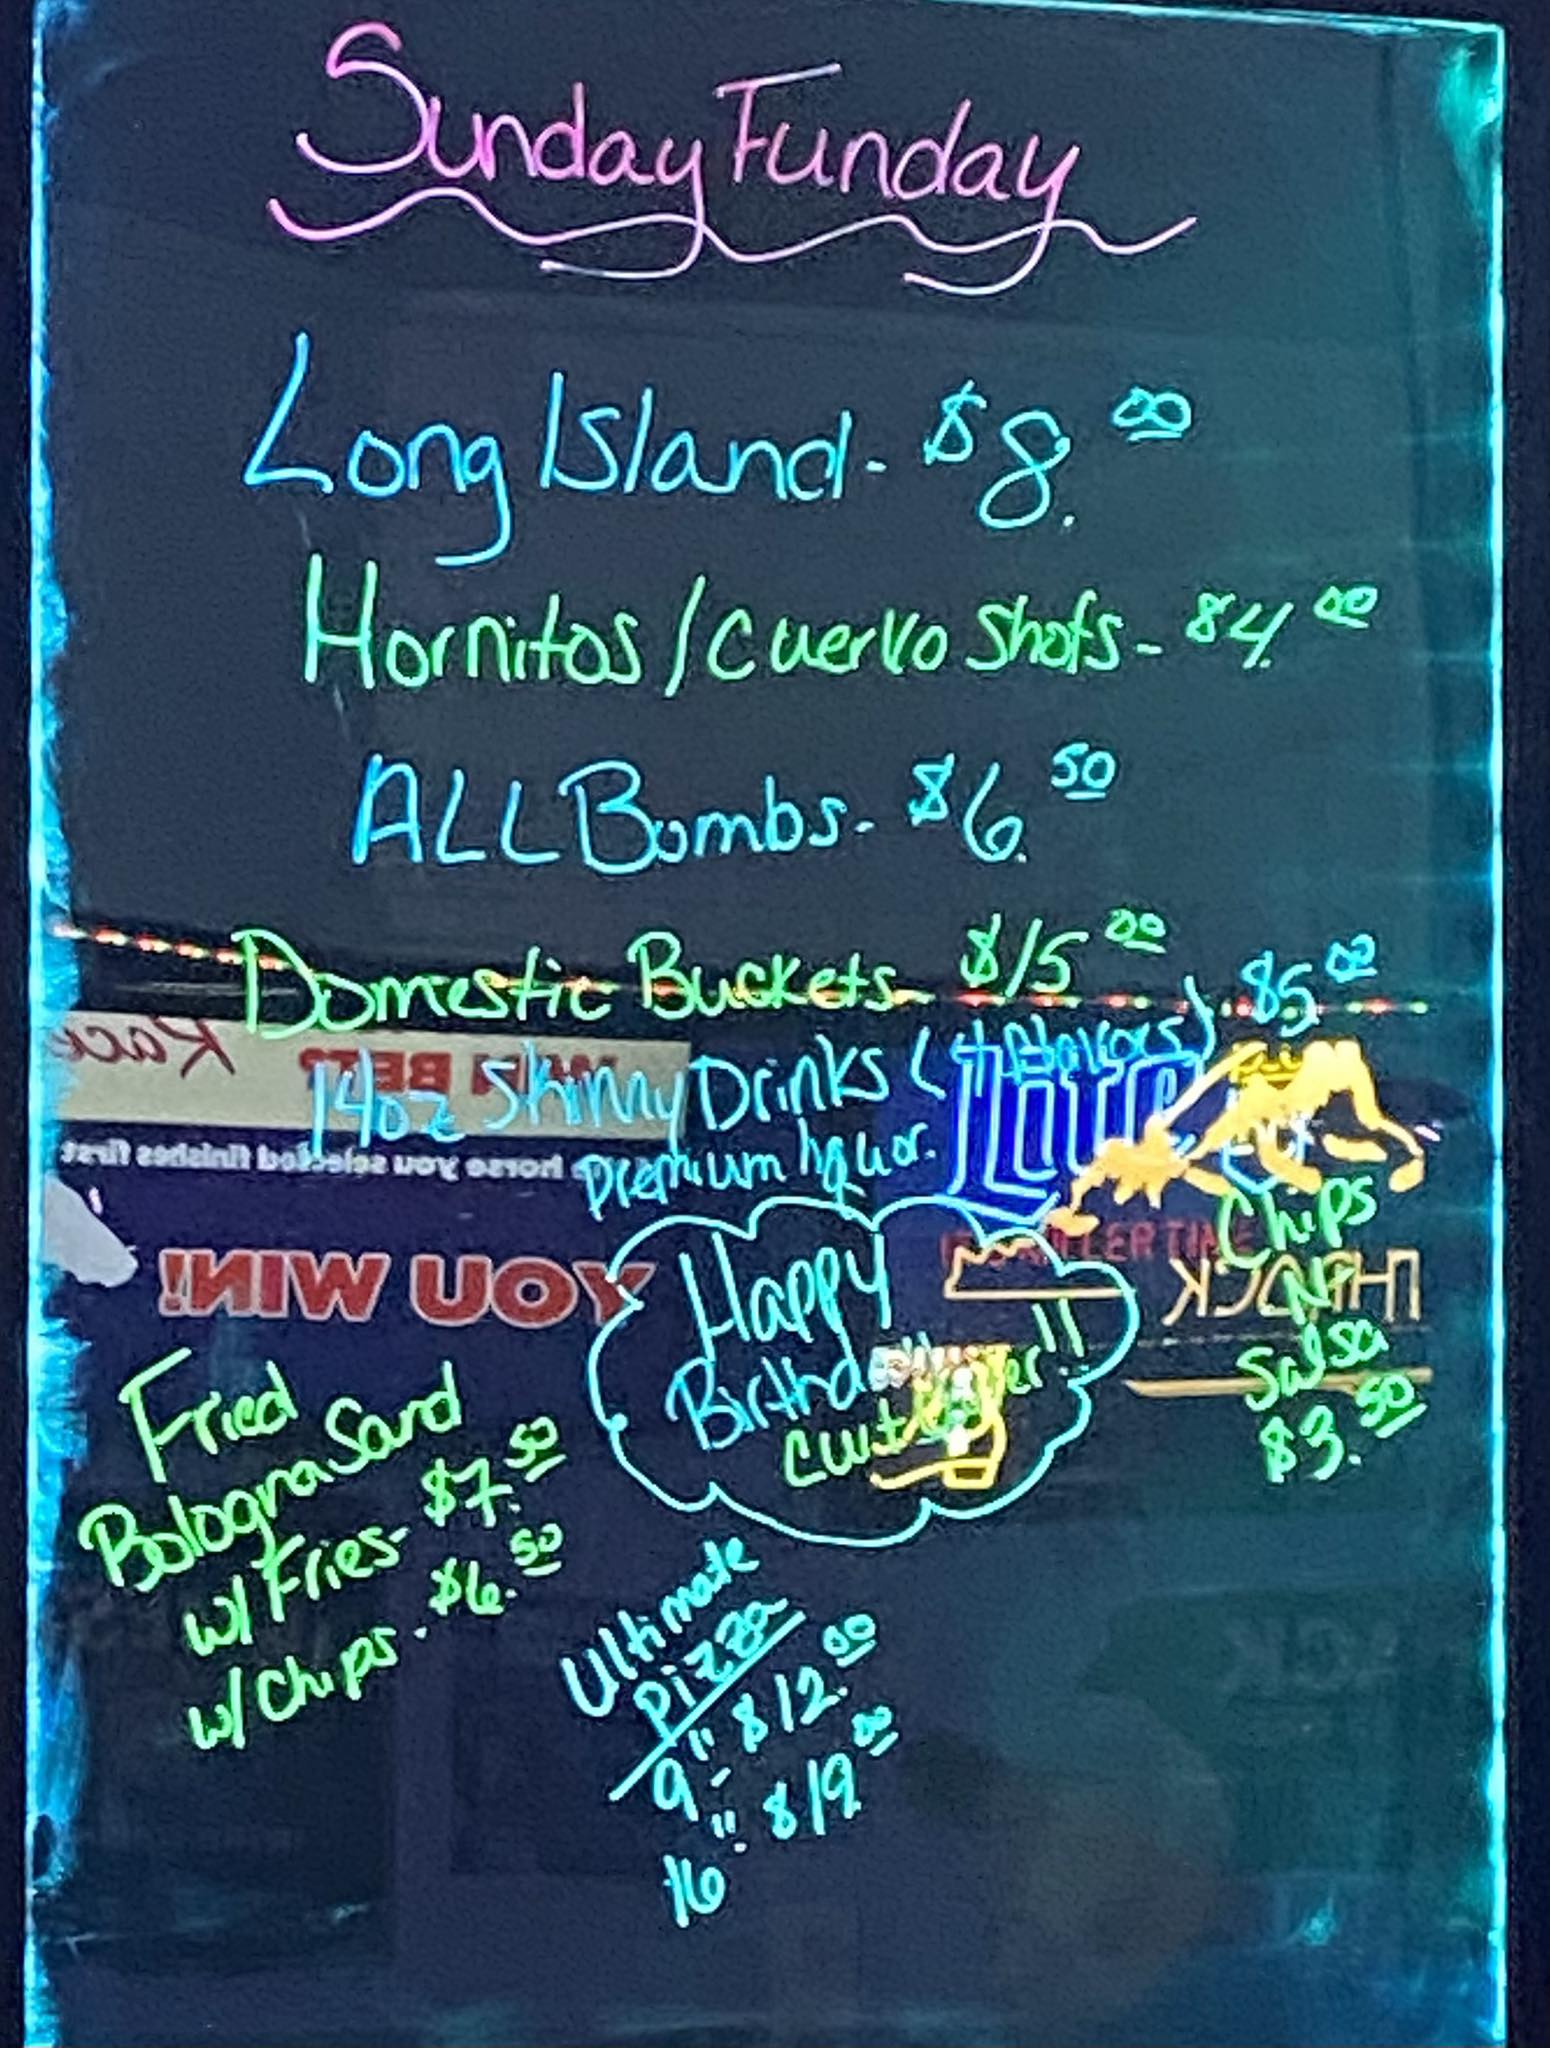 Sunday Funday
Long Island - $8.00
Hornitos / Cuervo Shots - $4.00
ALL Bombs - $6.50
Domestic Buckets - $15.00
14oz Skinny Drinks (4 flavors) $5.00
premium liquor.
Happy
Birthday
!!
Chips
N
Salsa
$3.50
Fried
Bologna Sand
w/ Fries - $7.50
w/ Chips - $6.50
Ultimate
Pizza
9" - $12.00
16" - $19.00
Race
WIN BET?
horse you selected finishes first
YOU WIN!
Lite
MILLER TIME